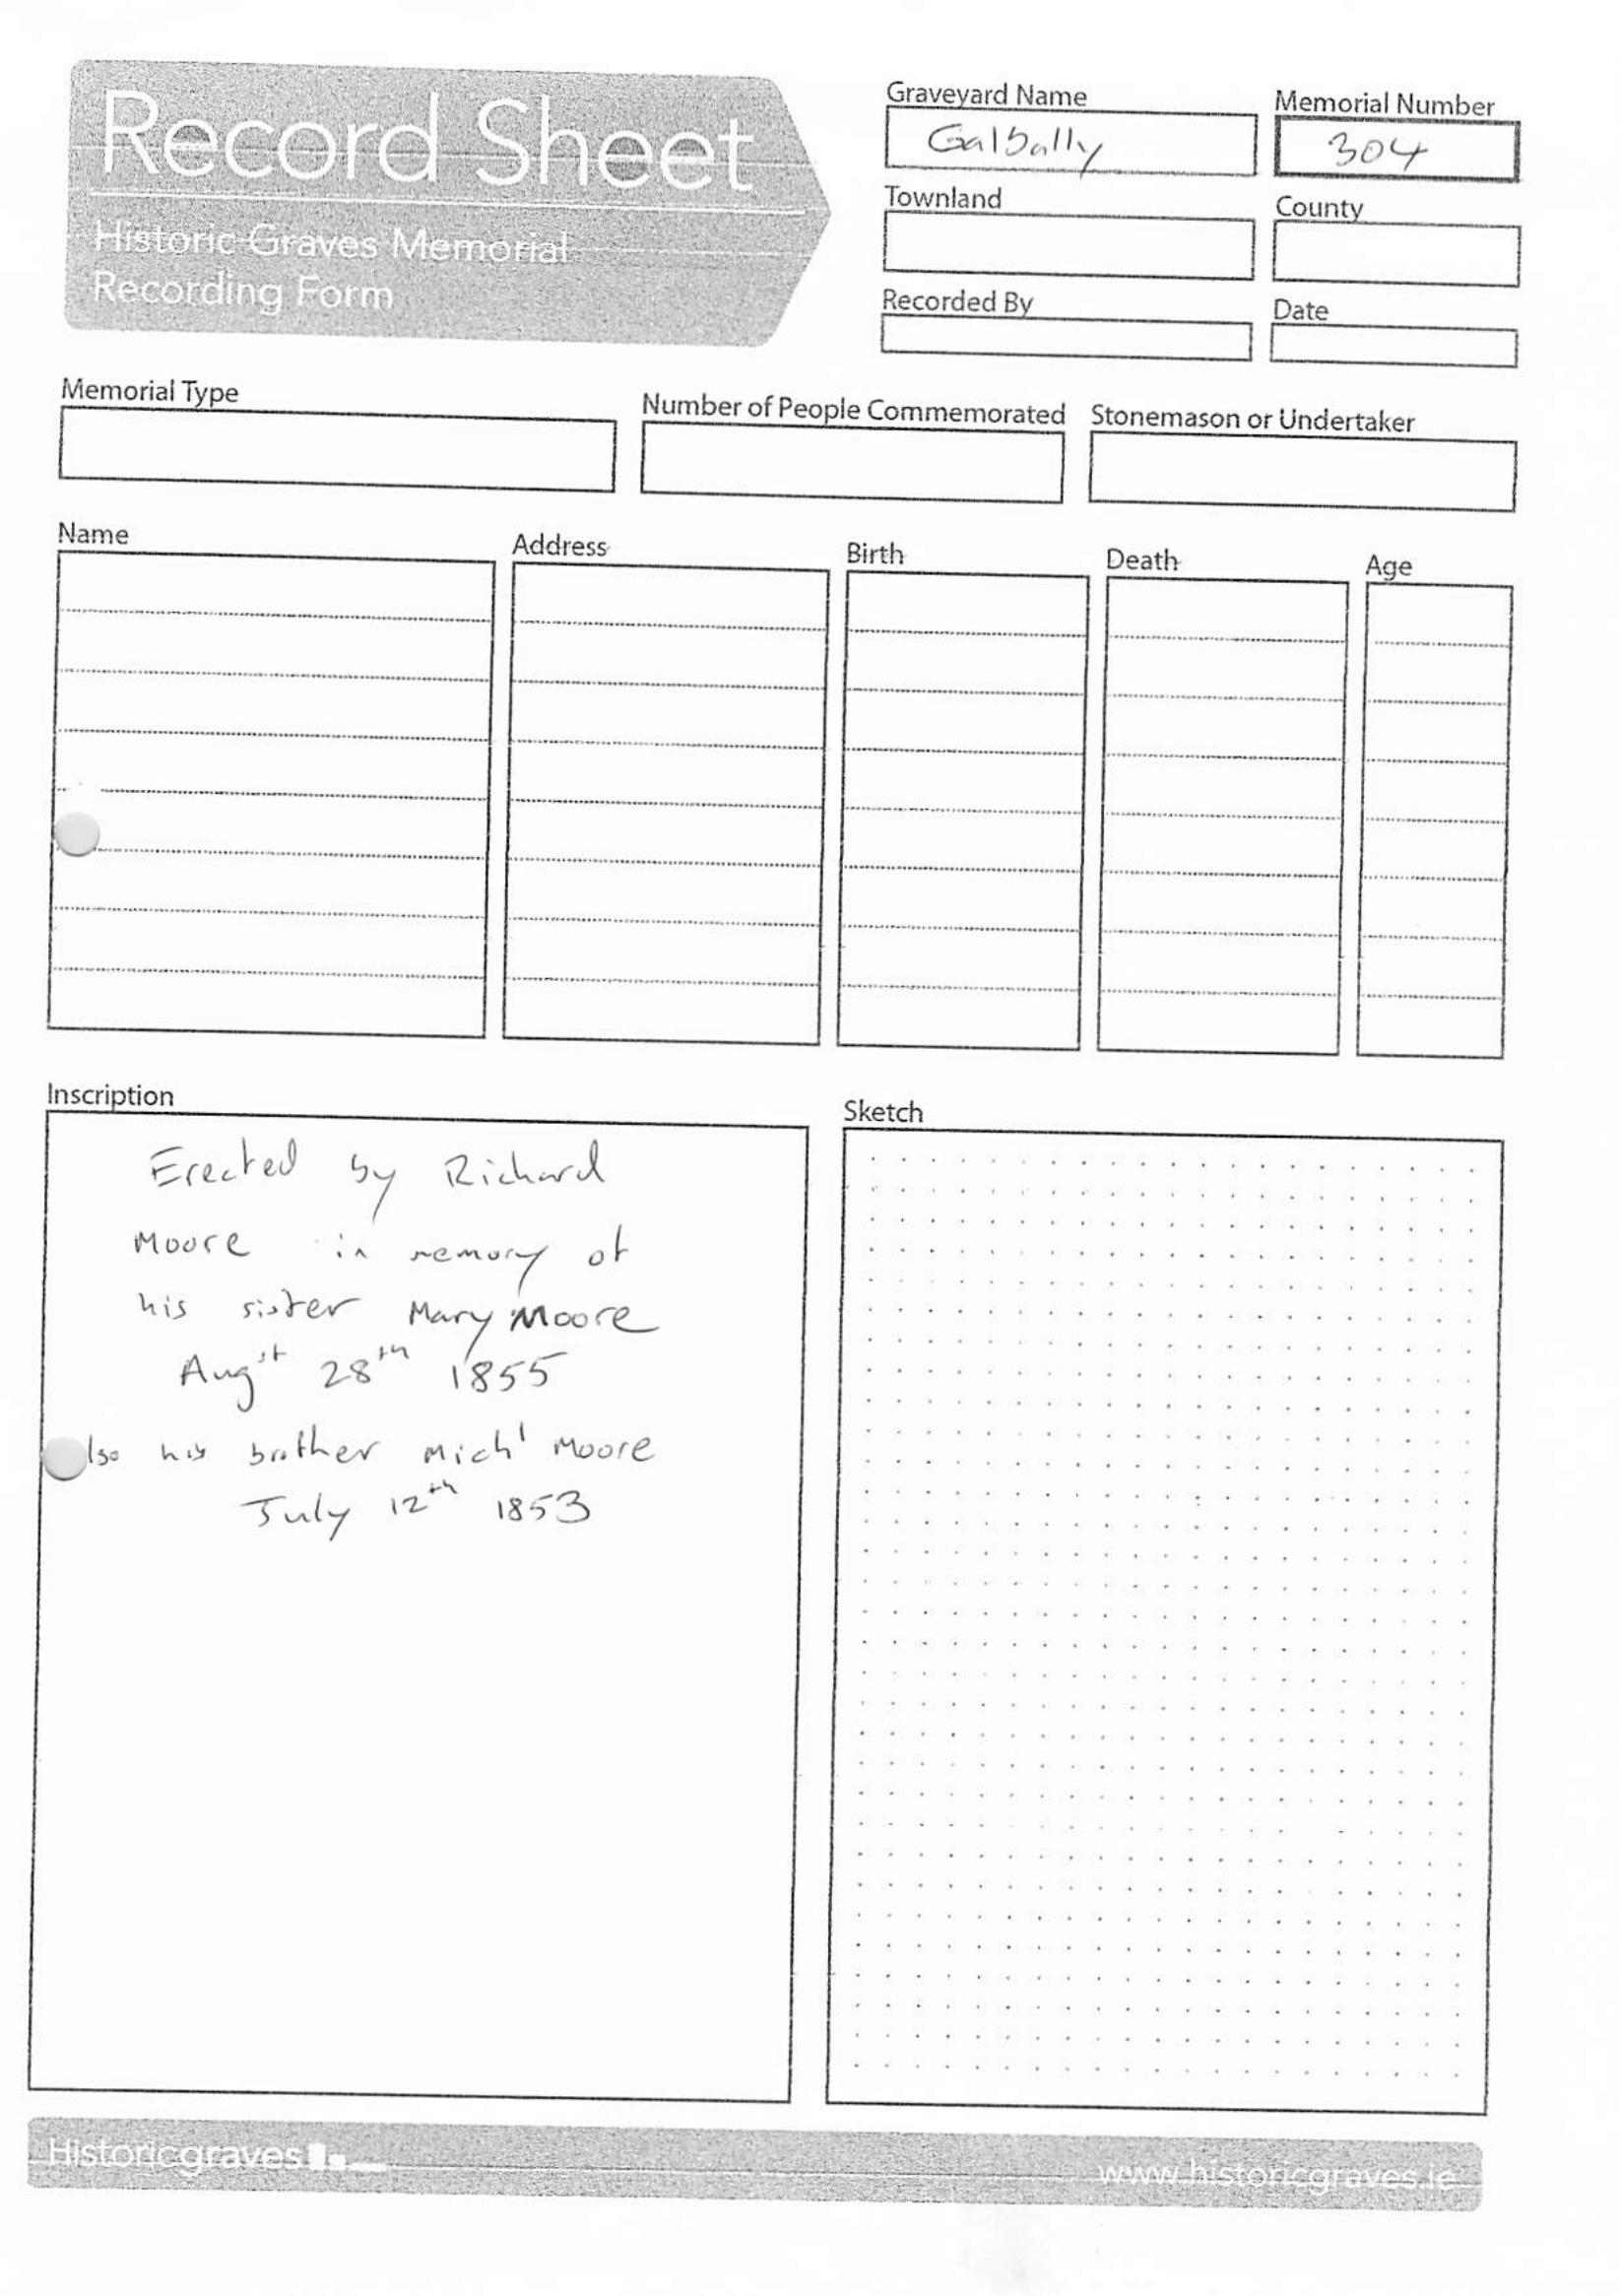 Record Sheet
Historic Graves Memorial
Recording Form
Graveyard Name
Galbally
Memorial Number
304
Townland
County
Recorded By
Date
Memorial Type
Number of People Commemorated
Stonemason or Undertaker
Name
Address
Birth
Death
Age
Inscription
Erected by Richard
Moore in memory of
his sister Mary Moore
Augst 28th 1855
lso his brother Michl Moore
July 12th 1853
Sketch
Historicgraves
www.historicgraves.ie